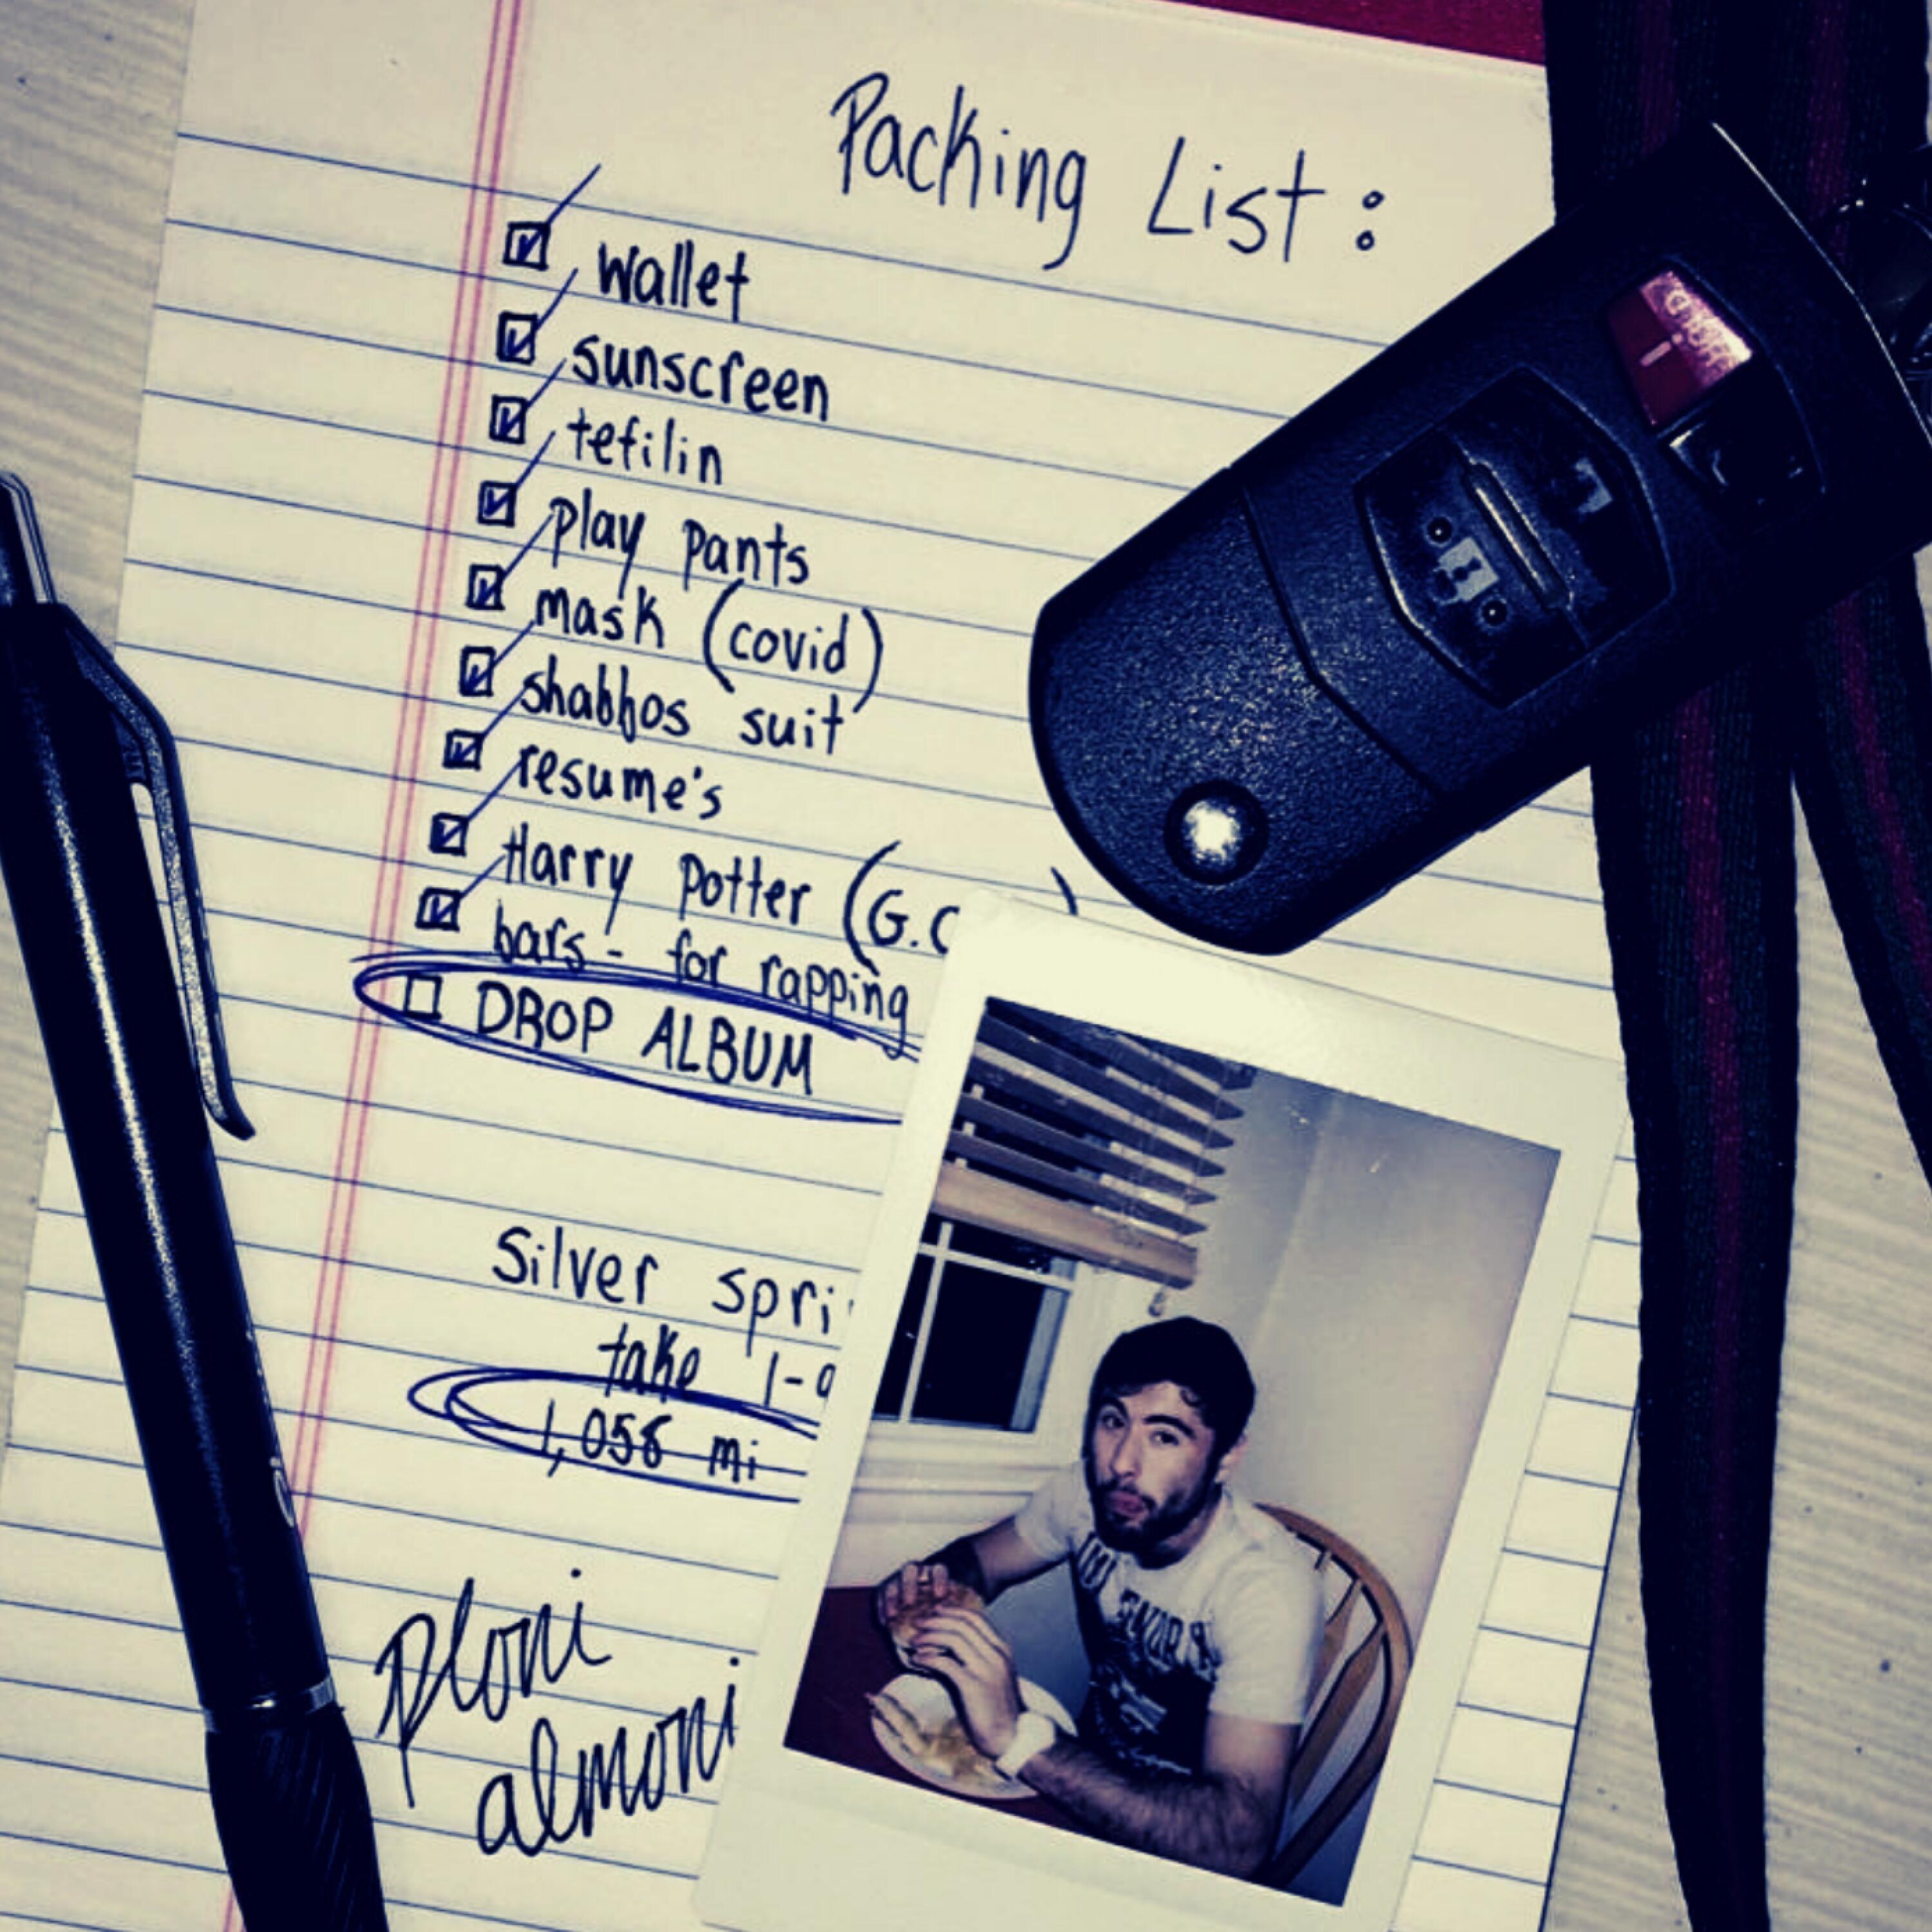 Packing List:
wallet
sunscreen
tefilin
play pants
mask (covid)
shabbos suit
resume's
Harry Potter (G.
bars - for rapping
DROP ALBUM
Silver
take
1,058 mi
ploni
almoni